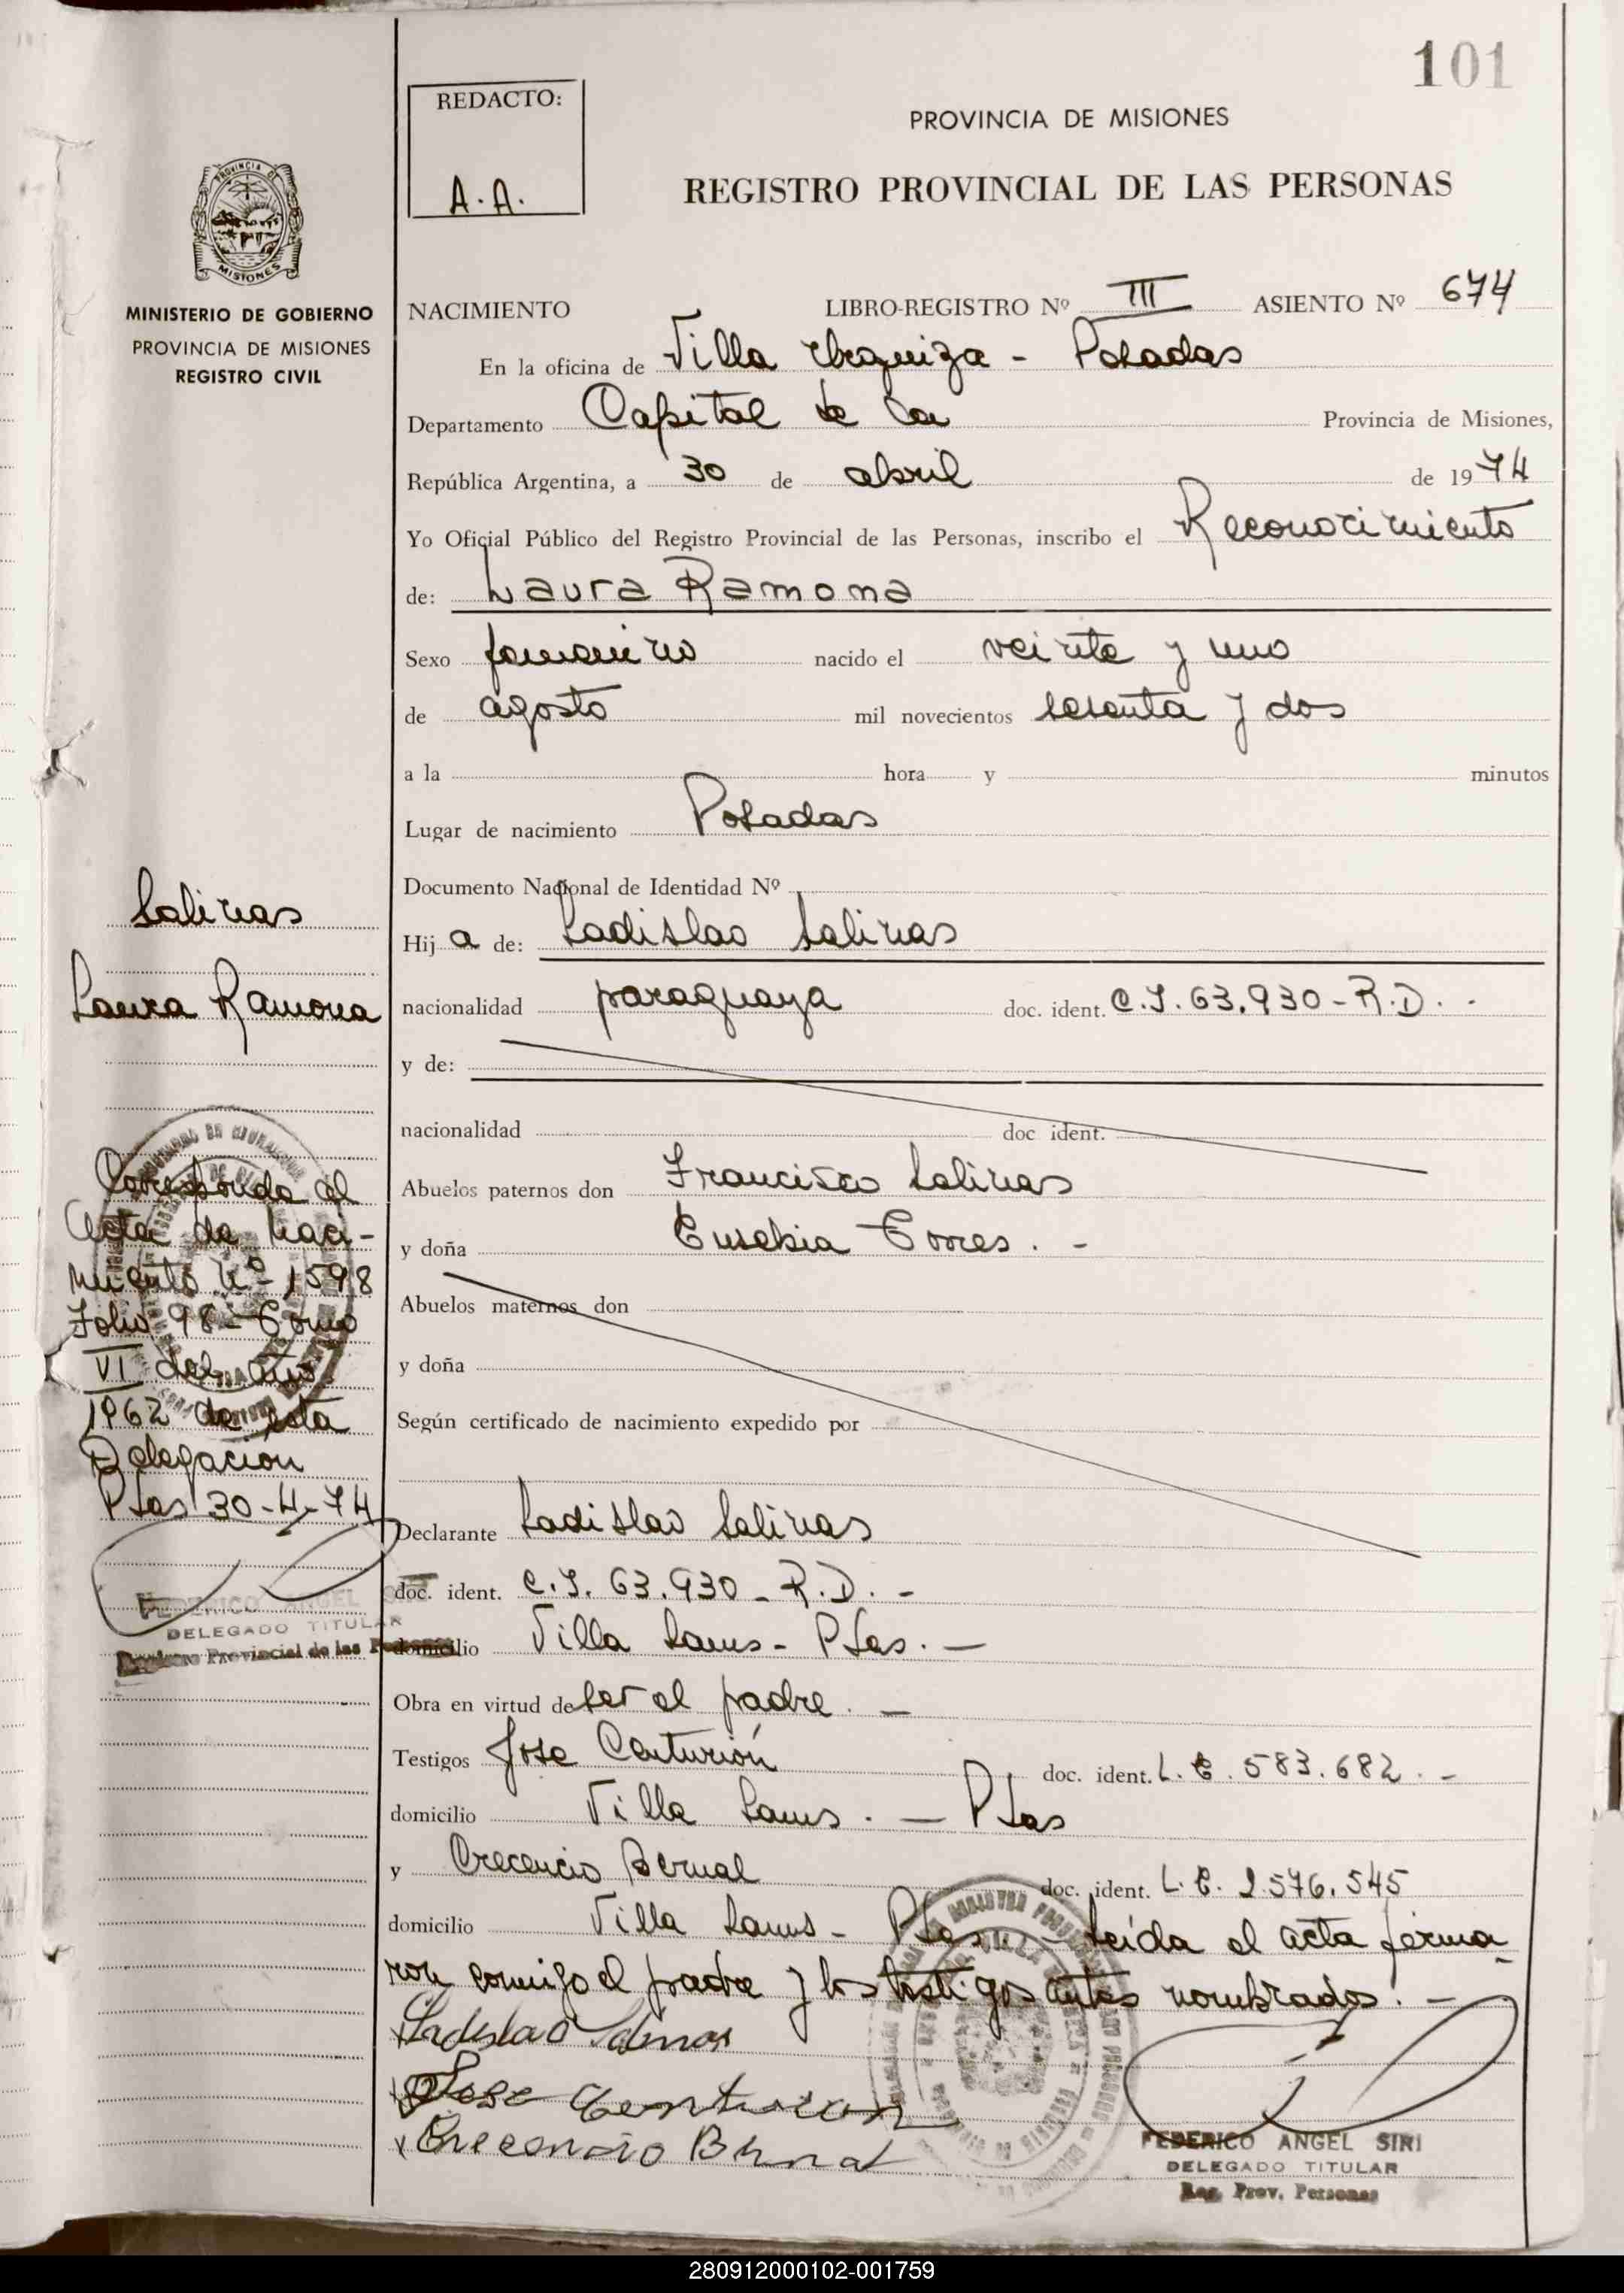 101
REDACTO:
A.A.
PROVINCIA DE MISIONES
REGISTRO PROVINCIAL DE LAS PERSONAS
PROVINCIA DE
MISIONES
MINISTERIO DE GOBIERNO
PROVINCIA DE MISIONES
REGISTRO CIVIL
NACIMIENTO LIBRO-REGISTRO Nº III ASIENTO Nº 674
En la oficina de Villa Urquiza - Posadas
Departamento Capital de la Provincia de Misiones,
República Argentina, a 30 de abril de 1974
Yo Oficial Público del Registro Provincial de las Personas, inscribo el Reconocimiento
de: Laura Ramona
Sexo femenino nacido el veinte y uno
de agosto mil novecientos sesenta y dos
a la hora y minutos
Lugar de nacimiento Posadas
Documento Nacional de Identidad Nº
Hija de: Ladislao Salinas
nacionalidad paraguaya doc. ident. C.I. 63.930 - R.D. -
y de:
nacionalidad doc ident.
Abuelos paternos don Francisco Salinas
y doña Eusebia Torres. -
Abuelos maternos don
y doña
Según certificado de nacimiento expedido por
Declarante Ladislao Salinas
doc. ident. C.I. 63.930 - R.D. -
domicilio Villa Sarus - Psas. -
Obra en virtud de ser el padre. -
Testigos Jose Centurión doc. ident. L.E. 583.682. -
domicilio Villa Sarus. - Psas
y Crecencio Bernal doc. ident. L.E. 2.576.545
domicilio Villa Sarus - Psas. - Leída el acta firma-
ron comigo el padre y los testigos antes nombrados. -
Ladislao Salinas
Jose Centurion
Crecencio Bernal
FEDERICO ANGEL SIRI
DELEGADO TITULAR
Reg. Prov. Personas
Salinas
Laura Ramona
Corresponde al
Acta de Naci-
miento nº 1598
Folio 98 - Tomo
VI del año
1962 de esta
Delegacion
Psas 30-4-74
FEDERICO ANGEL SIRI
DELEGADO TITULAR
Registro Provincial de las Personas
280912000102-001759